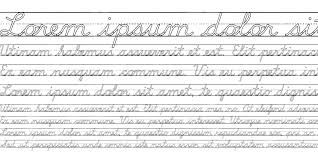 Lorem ipsum dolor sit
Utinam habemus assueverit et est. Elit pertinac
Ea eam nusquam commune. Vis eu perpetua in
Lorem ipsum dolor sit amet, te quaestio dignis
Utinam habemus assueverit et est. Elit pertinacia mea no. At eleifend
Ea eam nusquam commune. Vis eu perpetua interesset. Utroque nominati
Lorem ipsum dolor sit amet, te quaestio dignissim repudiandae